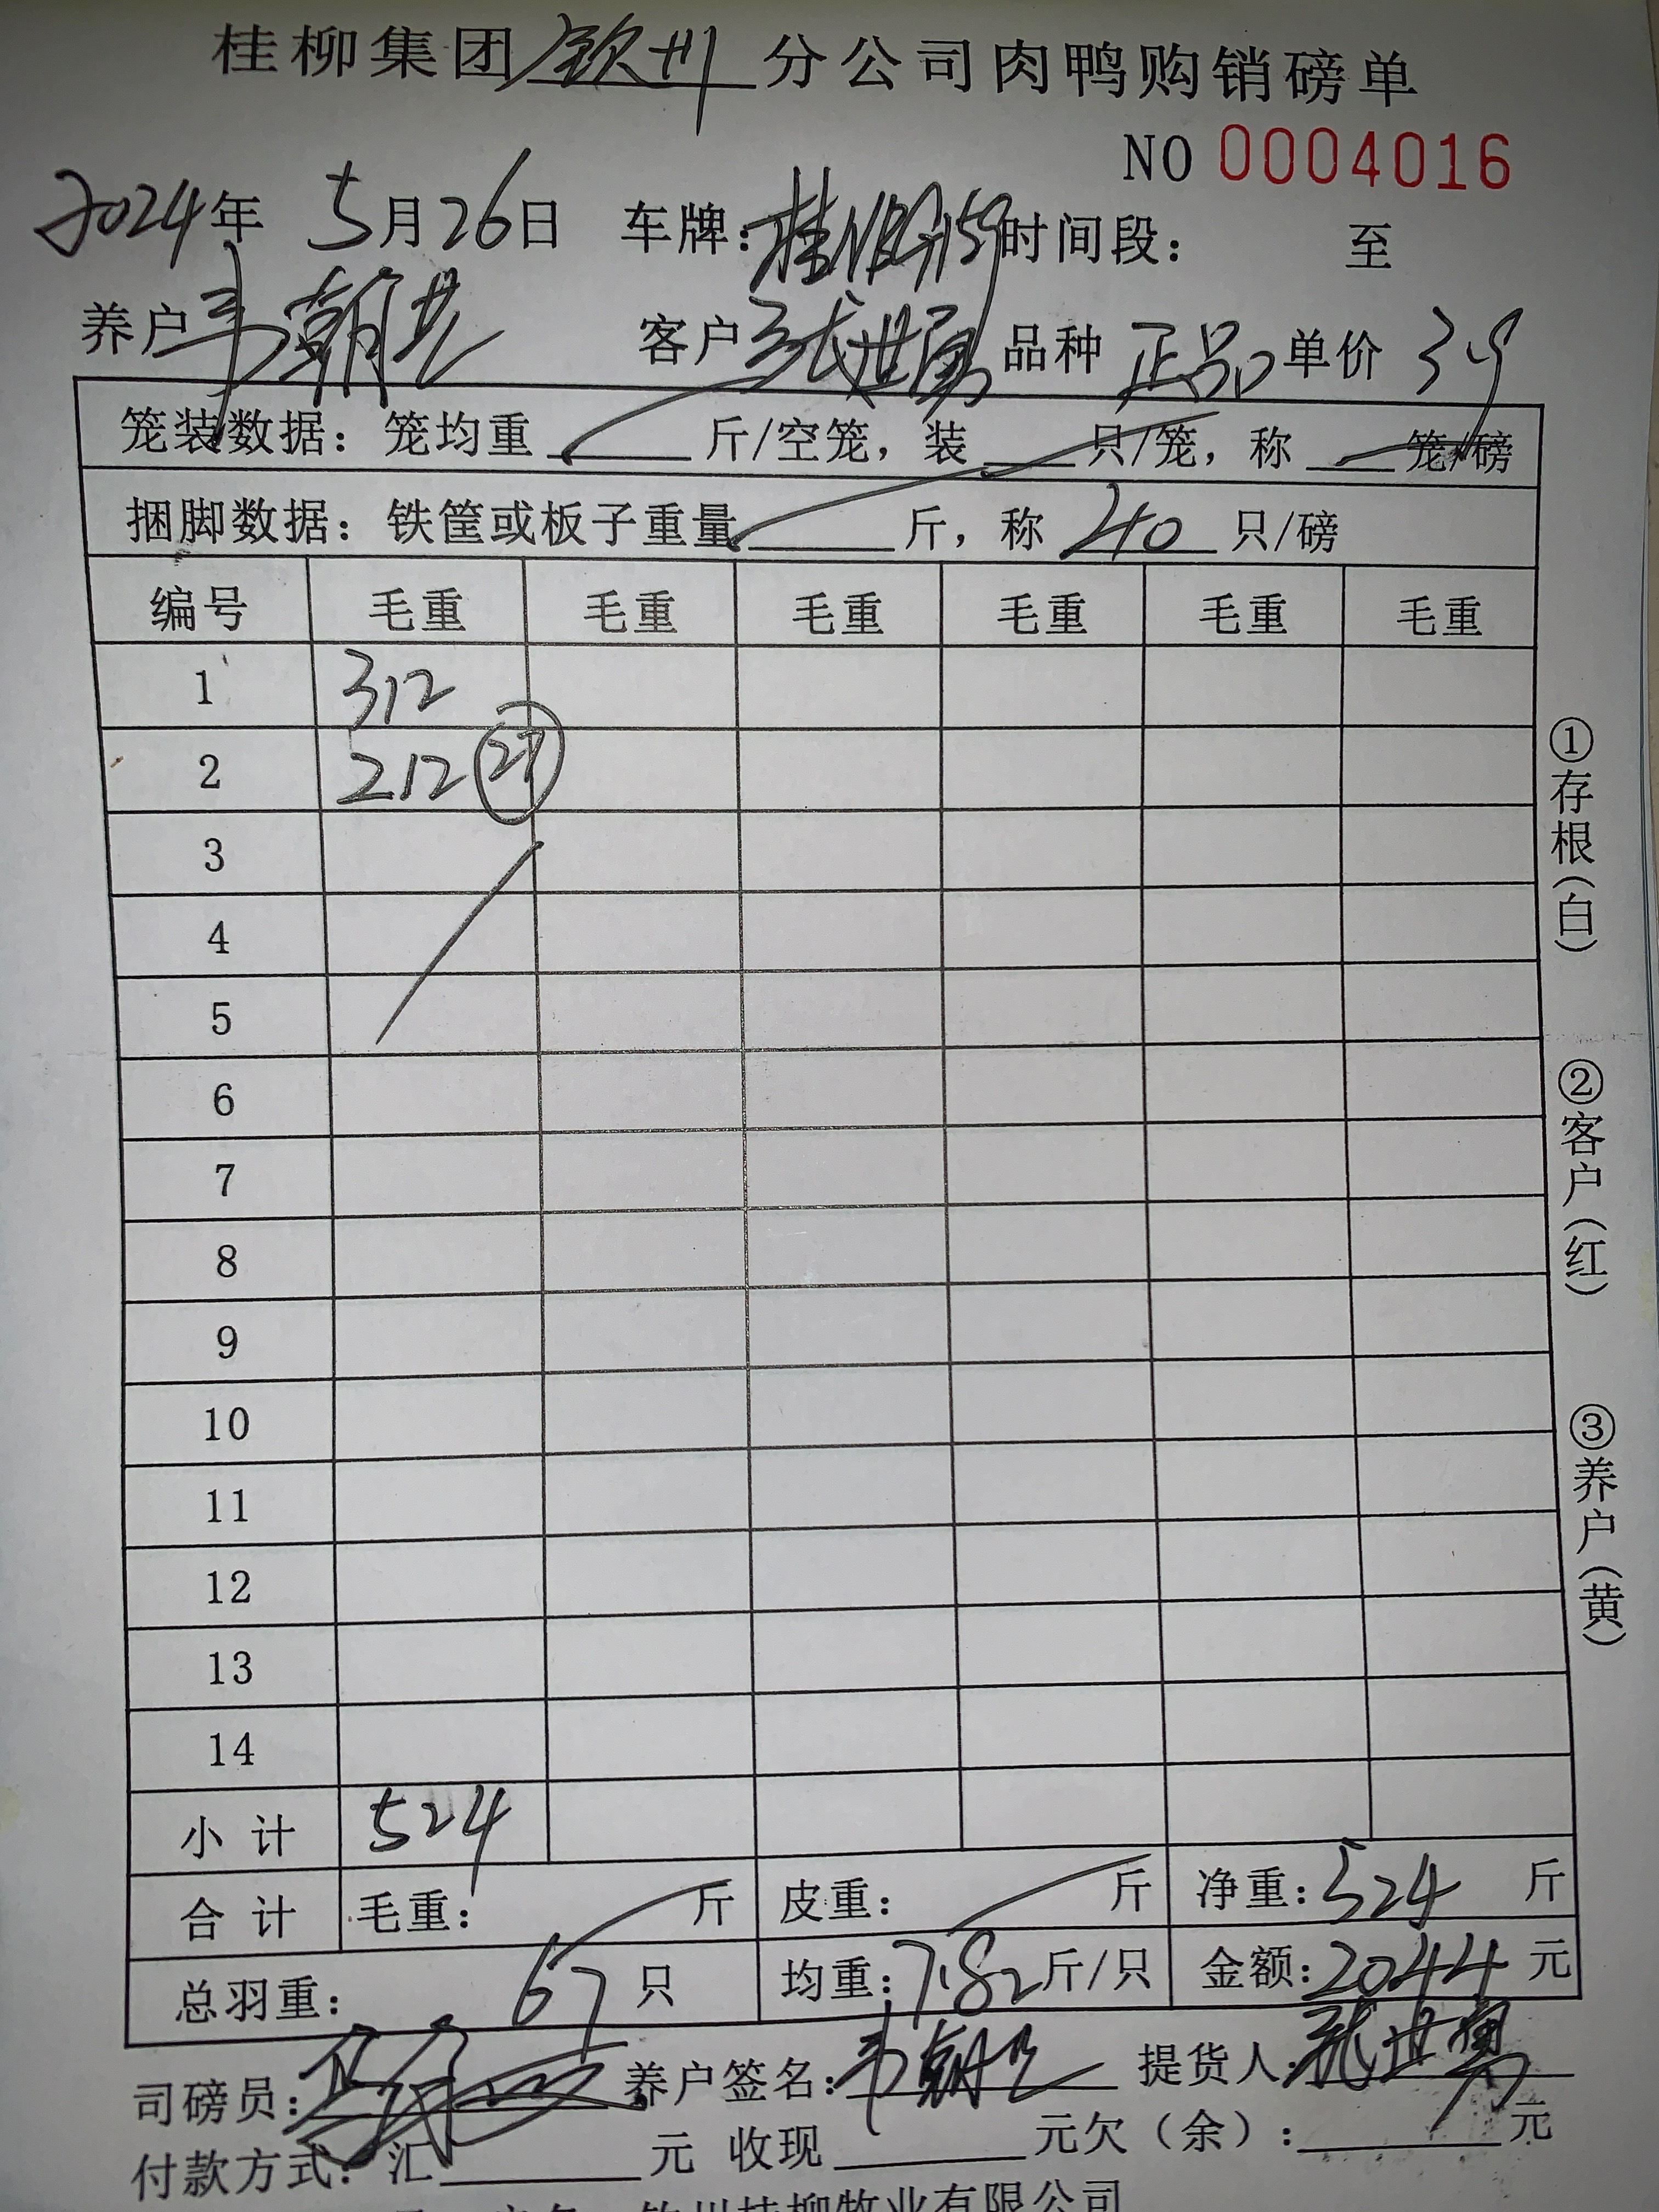 桂柳集团钦州分公司肉鸭购销磅单
NO 0004016
2024年 5月26日 车牌: 时间段: 至
养户韦朝 客户张世勇 品种 正品 单价 3.9
笼装数据: 笼均重 斤/空笼, 装 只/笼, 称 笼/磅
捆脚数据: 铁筐或板子重量 斤, 称 40 只/磅
编号 毛重 毛重 毛重 毛重 毛重 毛重
1 312
2 212 27
3
4
5
6
7
8
9
10
11
12
13
14
小计 524
合计 毛重: 斤 皮重: 斤 净重: 524 斤
总羽重: 67 只 均重: 7.82 斤/只 金额: 2044 元
司磅员: 养户签名: 韦朝 提货人: 张世勇
付款方式: 汇 元 收现 元欠(余): 元
钦州桂柳牧业有限公司
①存根(白)
②客户(红)
③养户(黄)